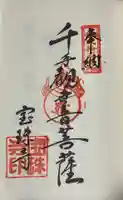 奉納
千手観世音菩薩
宝珠寺